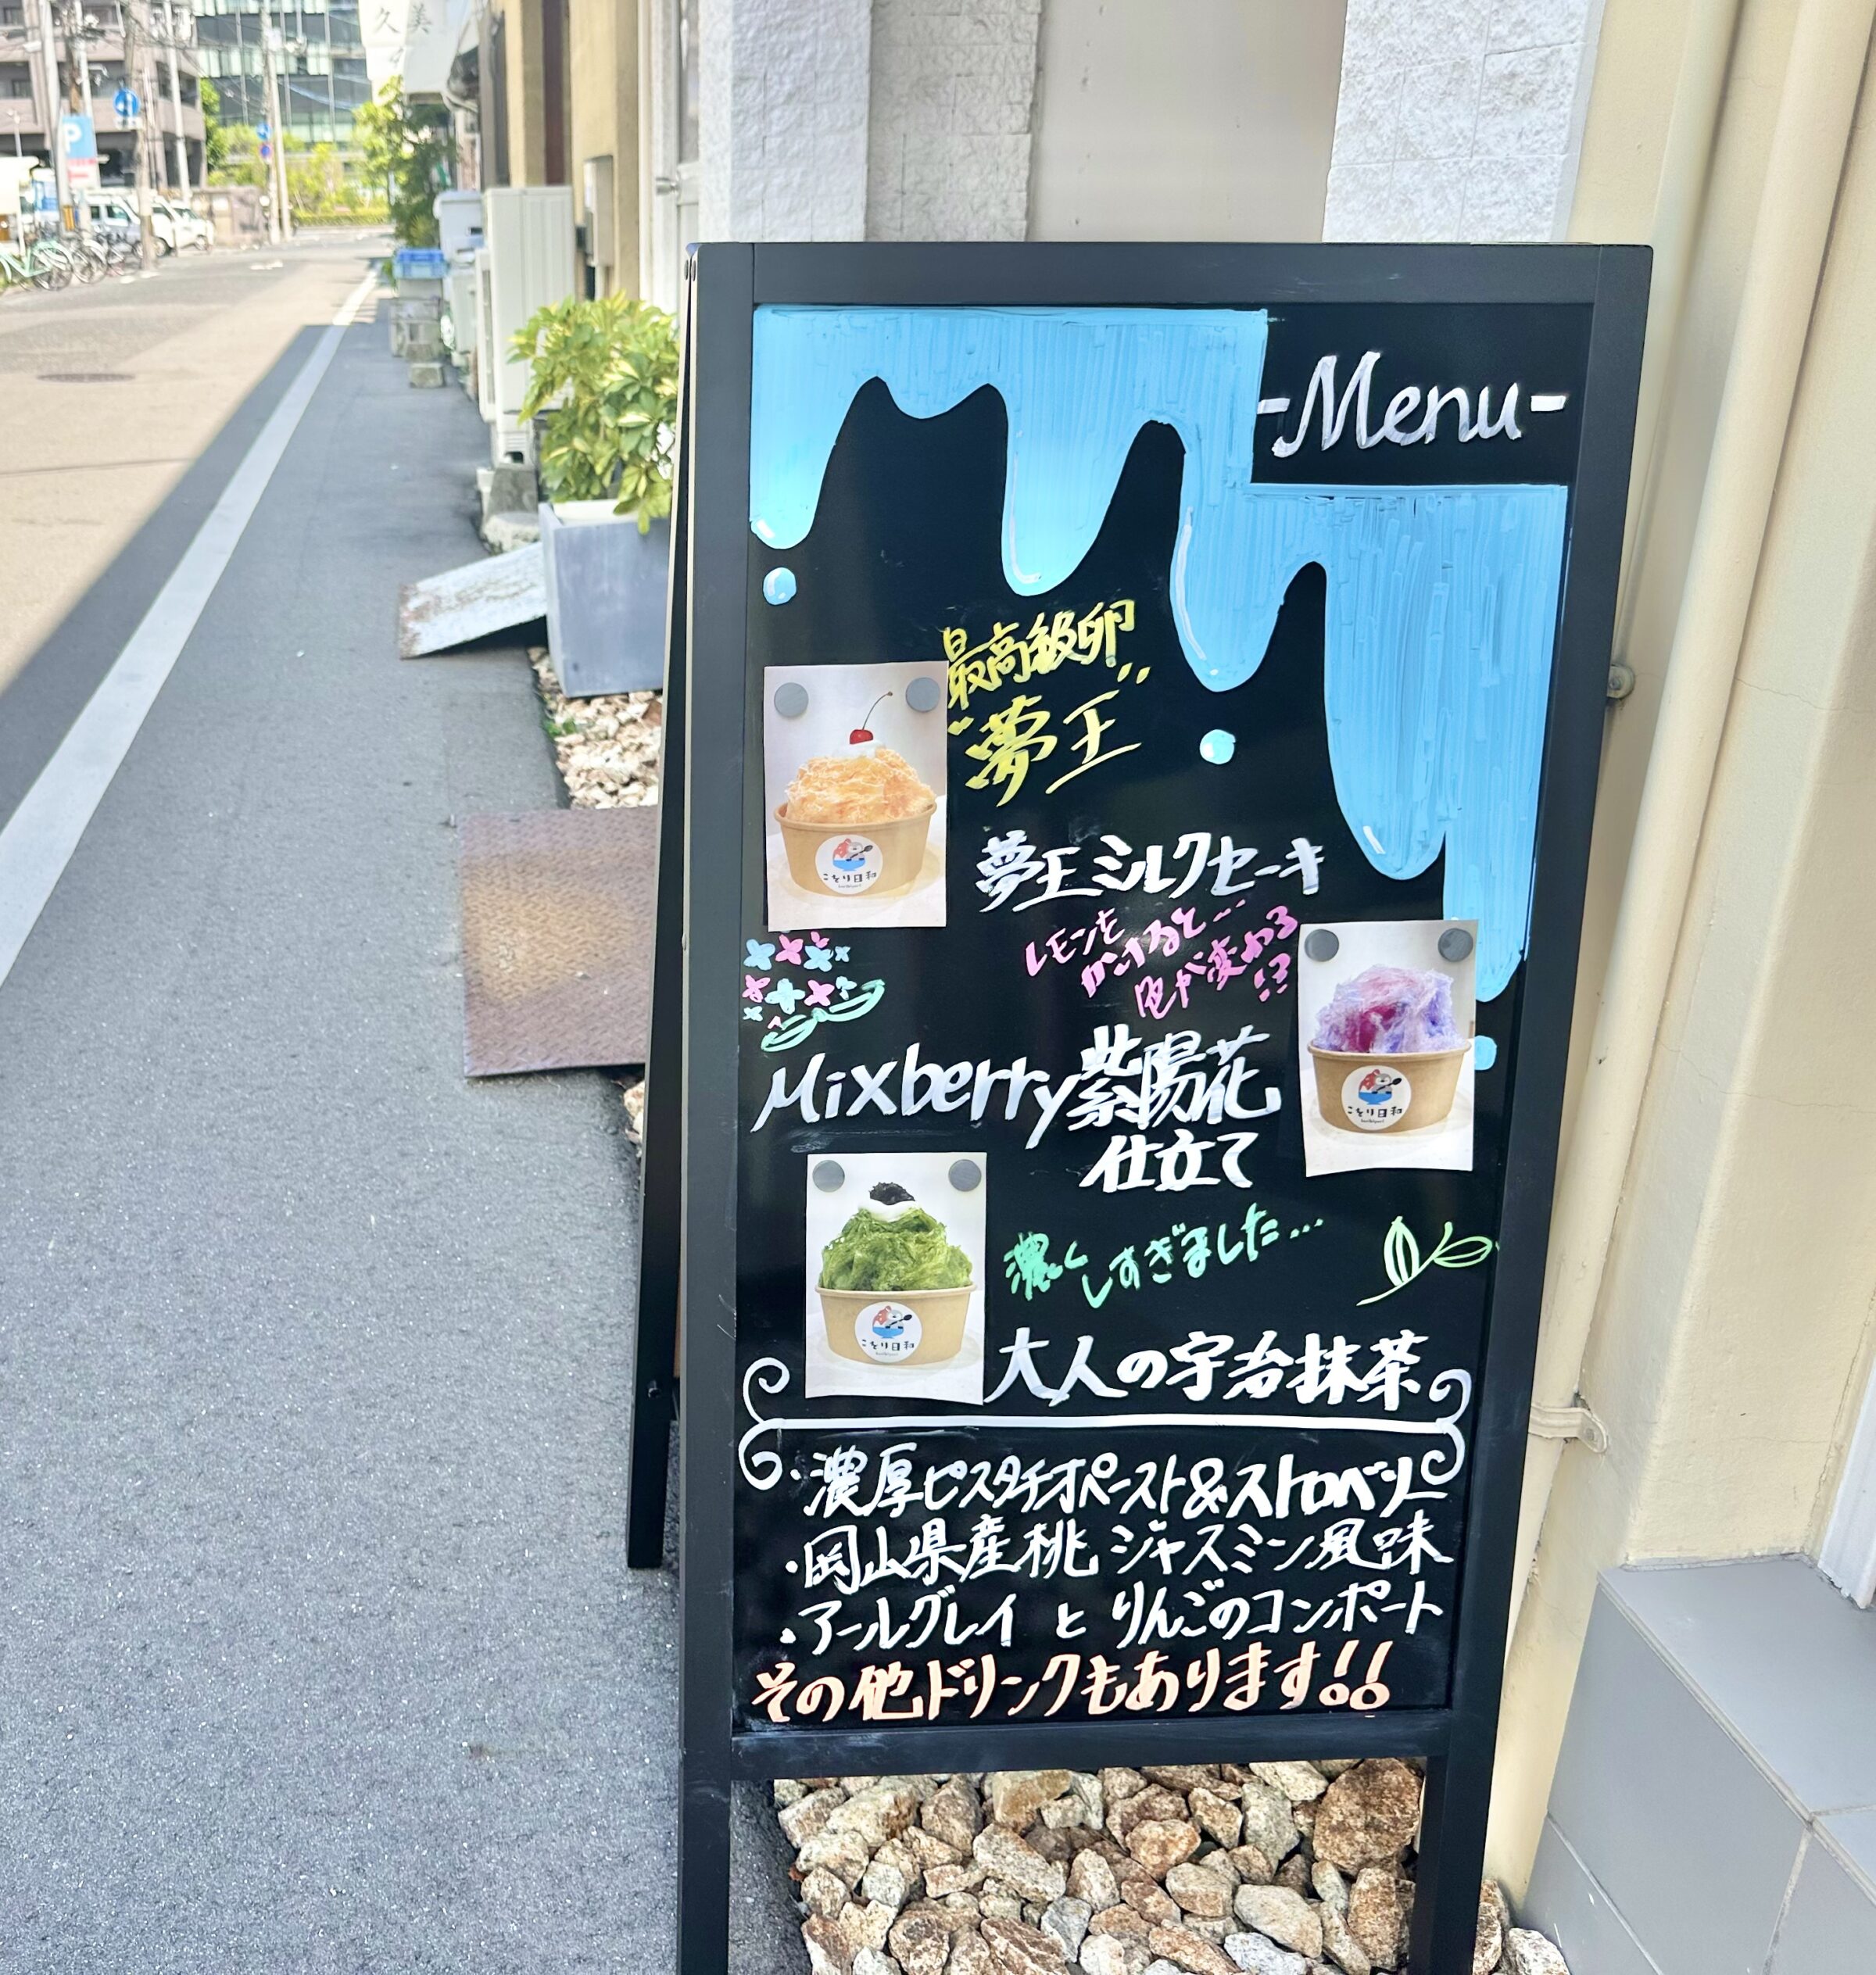 久美
P
-Menu-
最高級卵
"夢王"
夢王ミルクセーキ
レモンを
かけると…
色が変わる
!?
Mixberry紫陽花
仕立て
濃くしすぎました…
大人の宇治抹茶
ことり日和
ことり日和
ことり日和
・濃厚ピスタチオペースト&ストロベリー
・岡山県産桃 ジャスミン風味
・アールグレイ と りんごのコンポート
その他ドリンクもあります!!